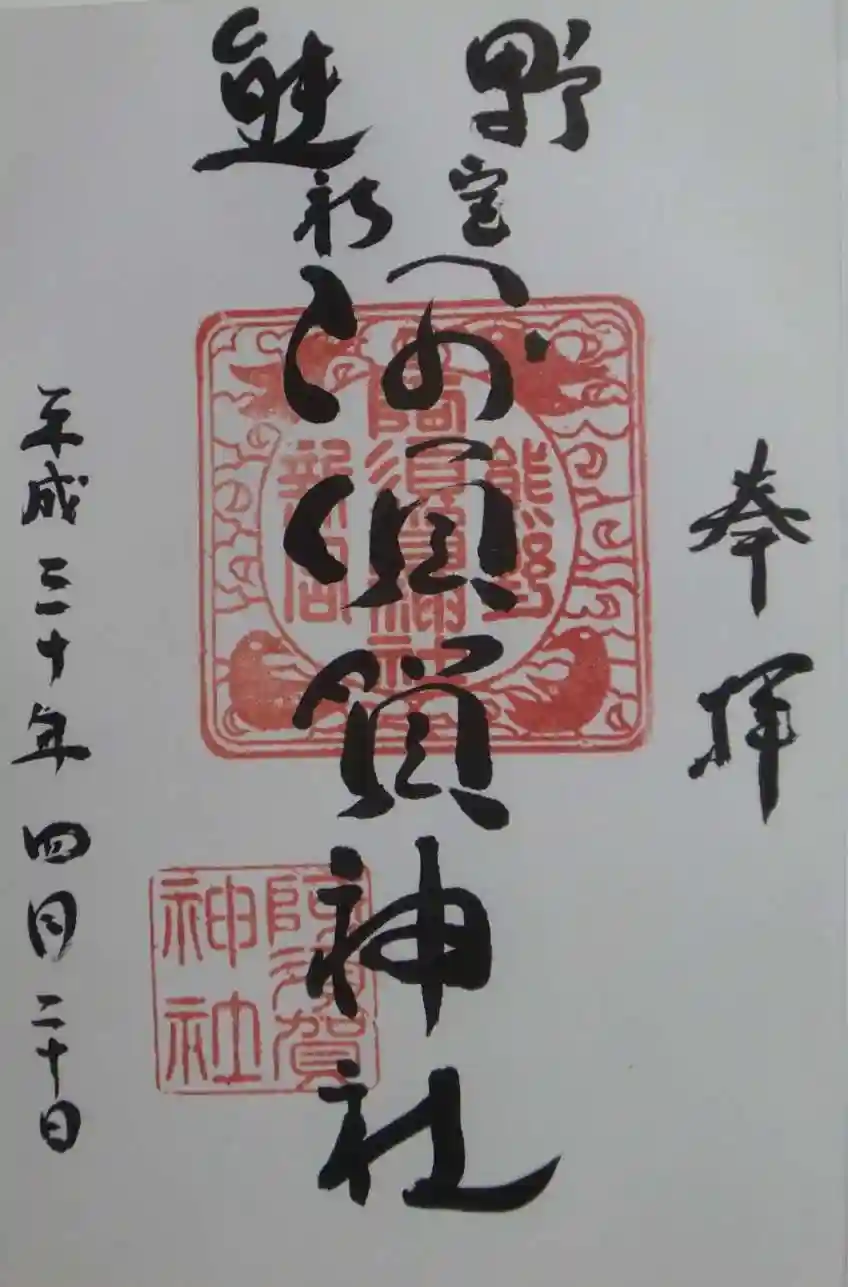 奉拝
熊野
新宮
阿須賀神社
平成三十年四月二十日
熊野
阿須賀神社
新宮
阿須賀
神社